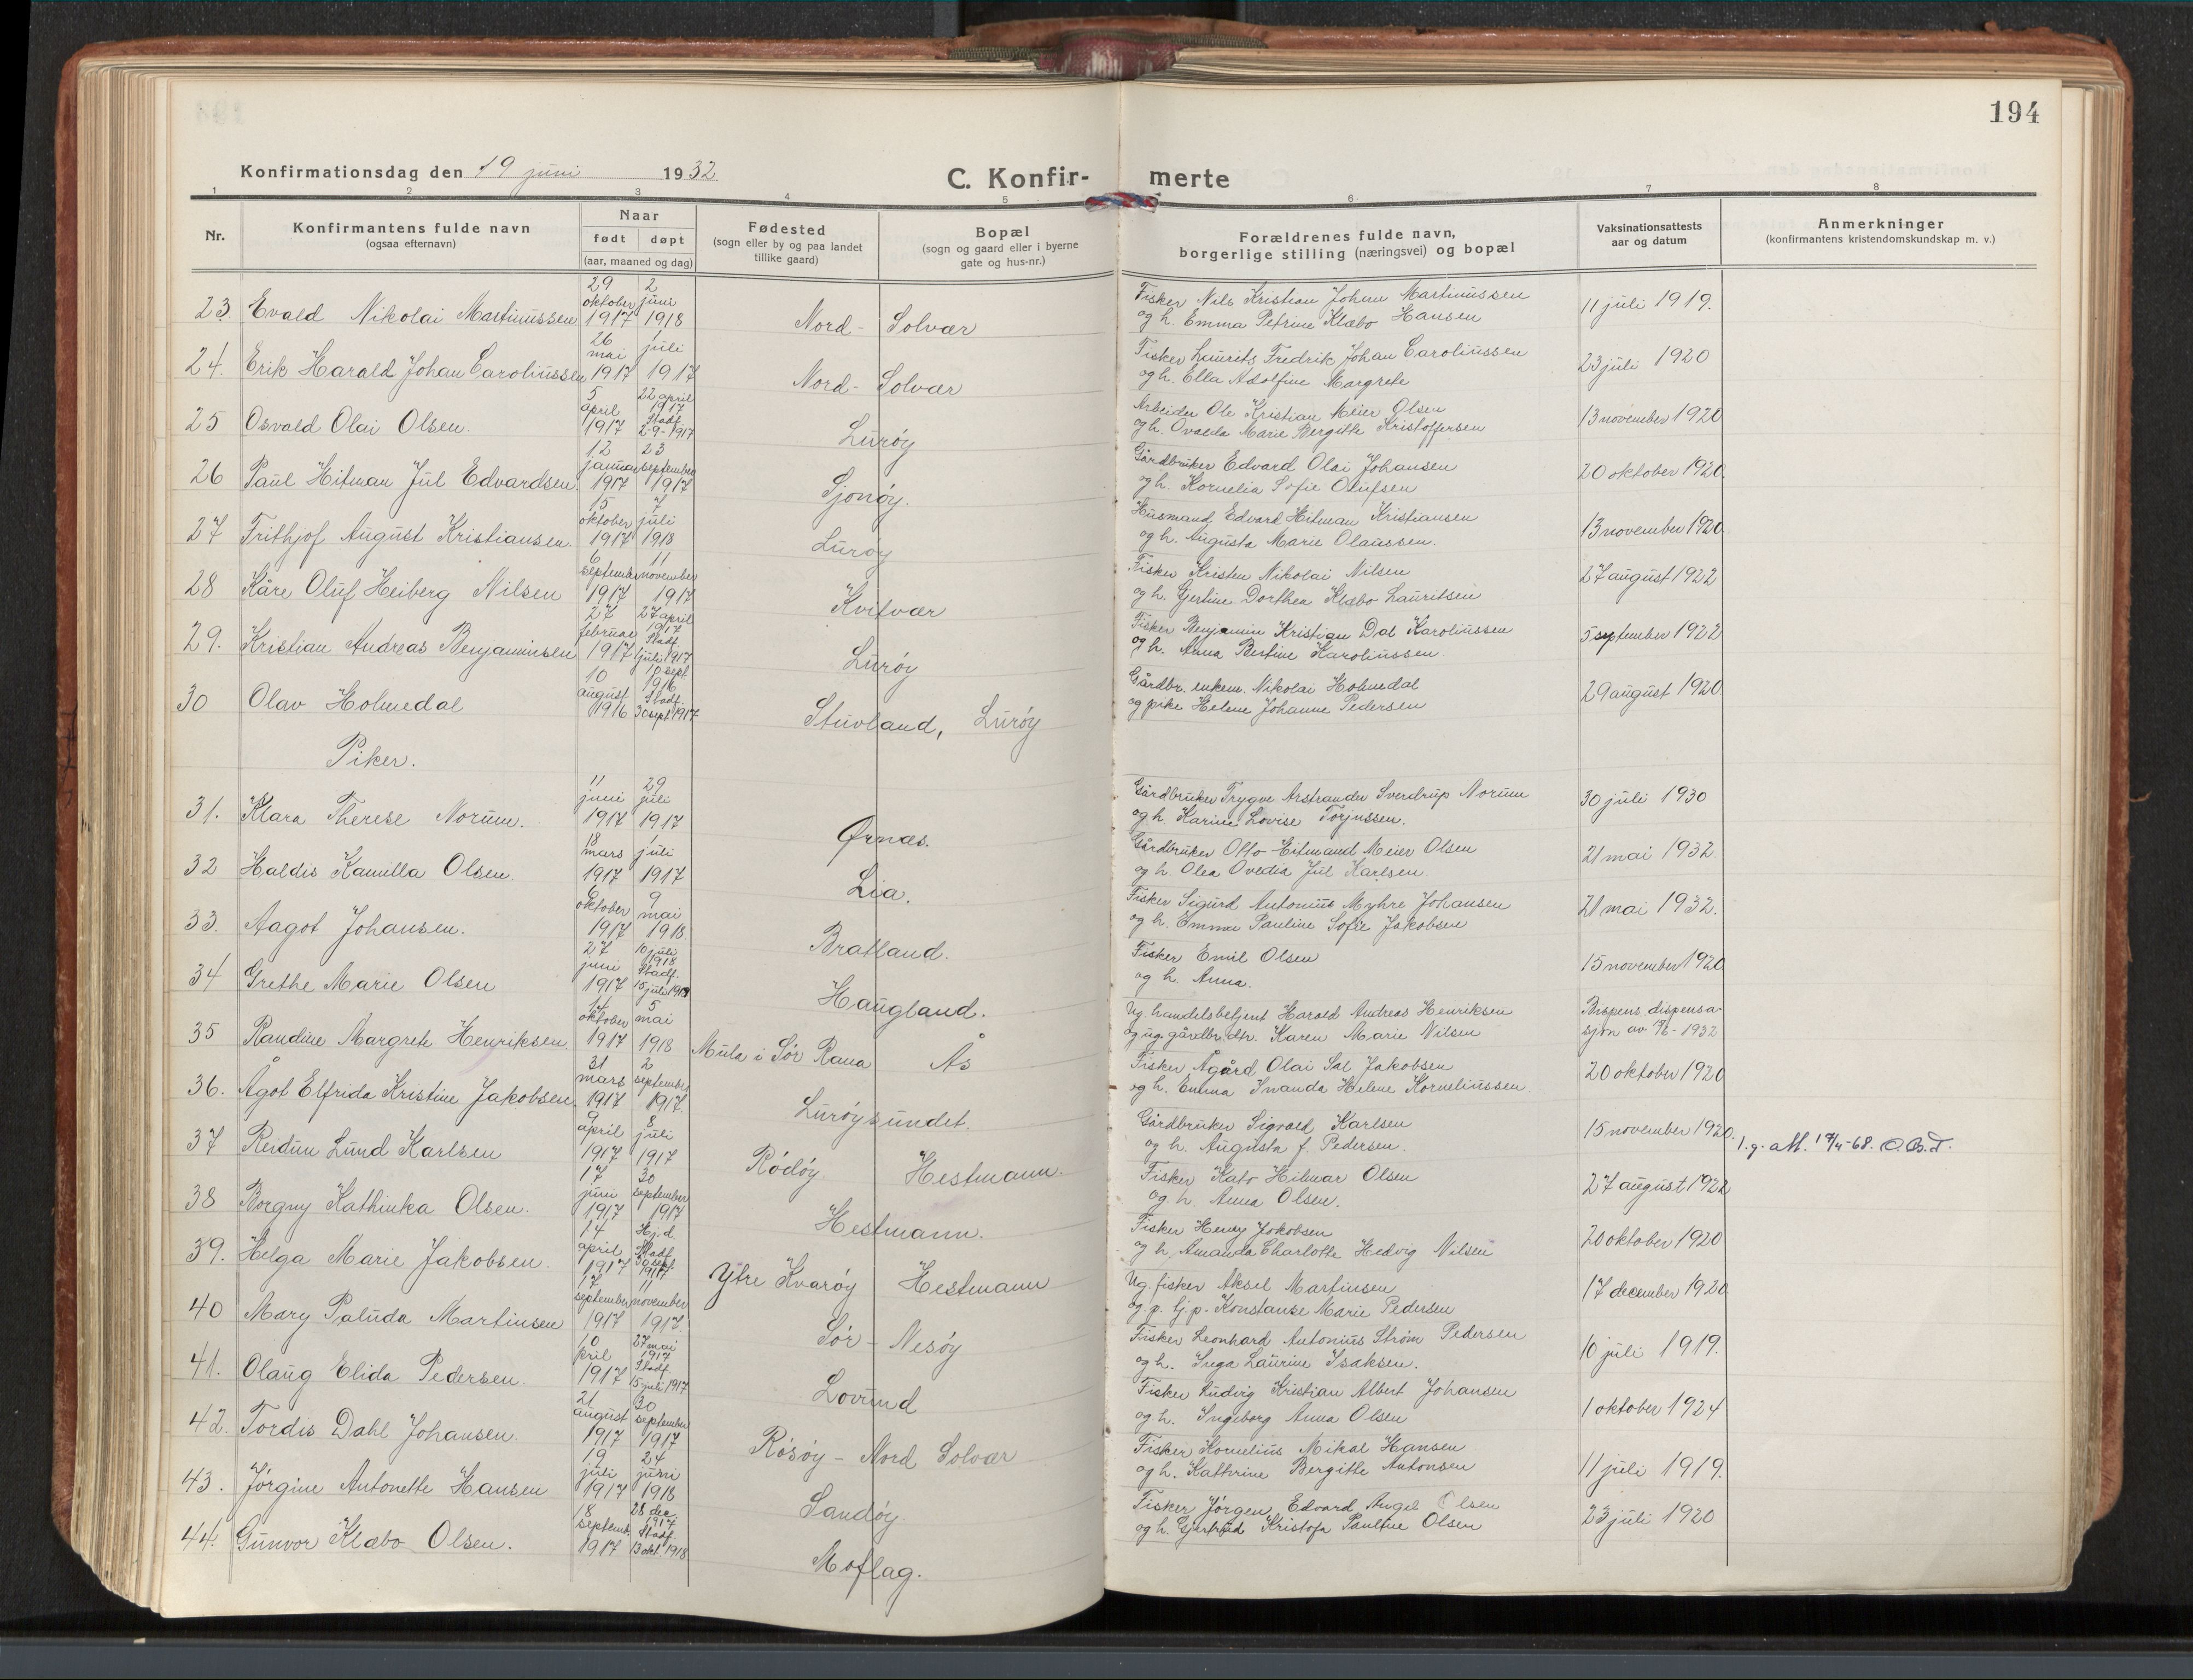 194
Konfirmationsdag den 19 juni 1932.
C. Konfir- merte
1 2 3 4 5 6 7 8
Nr.
Konfirmantens fulde navn
(ogsaa efternavn)
Naar
født døpt
(aar, maaned og dag)
Fødested
(sogn eller by og paa landet
tillike gaard)
Bopæl
(sogn og gaard eller i byerne
gate og hus-nr.)
Forældrenes fulde navn,
borgerlige stilling (næringsvei) og bopæl
Vaksinationsattests
aar og datum
Anmerkninger
(konfirmantens kristendomskundskap m. v.)
29 2
oktober juni
23. Evald Nikolai Martinussen 1917 1918 Nord- Solvær
Fisker Nils Kristian Johan Martinussen
og h. Emma Petrine Klæbo Hansen
11 juli 1919.
26 1
mai juli
24. Erik Harald Johan Caroliussen 1917 1917 Nord- Solvær
Fisker Laurits Fredrik Johan Caroliussen
og h. Ella Adolfine Margrete
23 juli 1920
5 22 april
april 1917
Stadf.
25 Osvald Olai Olsen. 1917 2-9-1917 Lurøy
Arbeider Ole Kristian Meier Olsen
og h. Ovalda Marie Bergitte Kristoffersen
13 november 1920
12 23
januar september
26 Paul Hitman Jul Edvardsen. 1917 1917 Sjonøy.
Gårdbruker Edvard Olai Johansen
og h. Kornelia Sofie Olufsen
20 oktober 1920.
15 7
oktober juli
27 Frithjof August Kristiansen. 1917 1918 Lurøy
Husmand Edvard Hitman Kristiansen
og h. Augusta Marie Olaussen.
13 november 1920.
6 11
september november
28 Kåre Oluf Heiberg Nilsen 1917 1917 Kvitvær
Fisker Kristen Nikolai Nilsen
og h. Gjertine Dorthea Klæbo Lauritsen
27 august 1922
27 27 april
februar 1917
Stadf.
29. Kristian Andreas Benjaminsen 1917 1 juli 1917 Lurøy
Fisker Benjamin Kristian Dal Karoliussen
og h. Anna Bertine Karoliussen.
5 september 1922
10 10 sept
august 1916
Stadf.
30 Olav Holmedal 1916 30 sept. 1917 Stuvland, Lurøy
Gårdbr. enkem. Nikolai Holmedal
og pike Helene Johanne Pedersen
29 august 1920.
Piker.
11 29
juni juli
31. Klara Therese Norum. 1917 1917 Ørnæs.
Gårdbruker Trygve Arstrander Sverdrup Norum
og h. Karine Lovise Torjussen.
30 juli 1930
18 1
mars juli
32 Haldis Kamilla Olsen. 1917 1917 Lia.
Gårdbruker Otto Eitmand Meier Olsen
og h. Olea Ovedia Jul Karlsen.
21 mai 1932.
6 9
oktober mai
33. Aagot Johansen. 1917 1918 Bratland.
Fisker Sigurd Antonius Myhre Johansen
og h. Emma Pauline Sofie Jakobsen
21 mai 1932.
27 10 juli
juni 1918
Stadf.
34 Grethe Marie Olsen 1917 15 juli 1918 Haugland.
Fisker Emil Olsen
og h. Anna.
15 november 1920
14 5
oktober mai
35 Randine Margrete Henriksen. 1917 1918 Mula i Sør Rana Ås
Ug. handelsbetjent Harald Andreas Henriksen
og ug. gårdbr. dtr. Karen Marie Nilsen
Bispens dispensa-
sjon av 1932
31 2
mars september
36. Ågot Elfrida Kristine Jakobsen. 1917 1917. Lurøysundet.
Fisker Ågård Olai Sal Jakobsen
og h. Emma Ivanda Helene Korneliussen.
20 oktober 1920
9 8
april juli
37 Reidun Lund Karlsen 1917 1917 Rødøy Hestmann.
Gårdbruker Sigvald Karlsen
og h. Augusta f. Pedersen.
15 november 1920.
l. g. att. 17/4-68. O.B.T.
17 30
juni september
38 Borgny Kathinka Olsen. 1917 1917 Hestmann.
Fisker Kato Hilmar Olsen
og h. Anna Olsen.
27 august 1922
14 Hj.d.
april Stadf.
30 sept.
39. Helga Marie Jakobsen. 1917 1917 Ytre Kvarøy Hestmann
Fisker Henry Jakobsen
og h. Amanda Charlotte Hedvig Nilsen
20 oktober 1920
17 11
september november
40 Mary Paluda Martinsen 1917 1917. Sør- Nesøy
Ug. fisker Aksel Martinsen
og p. tj.p. Konstanse Marie Pedersen
17 december 1920.
10 27 mai
april 1917
Stadf.
41. Olaug Elida Pedersen. 1917 15 juli 1917 Lovund
Fisker Leonhard Antonius Strøm Pedersen
og h. Inga Laurine Isaksen.
10 juli 1919.
21 30
august september
42. Tordis Dahl Johansen. 1917 1917 Røsøy - Nord Solvær
Fisker Ludvig Kristian Albert Johansen
og h. Ingeborg Anna Olsen
1 oktober 1924
19 24
juli juni
43. Jørgine Antonette Hansen 1917 1918 Sandøy.
Fisker Kornelius Mikal Hansen
og h. Kathrine Bergitte Antonsen
11 juli 1919.
18 28 dec.
septemb. 1917
Stadf.
44. Gunvor Klæbo Olsen. 1917 13 okt. 1918 Moflag.
Fisker Jørgen Edvard Angel Olsen
og h. Gjertrud Kristofa Pauline Olsen
23 juli 1920